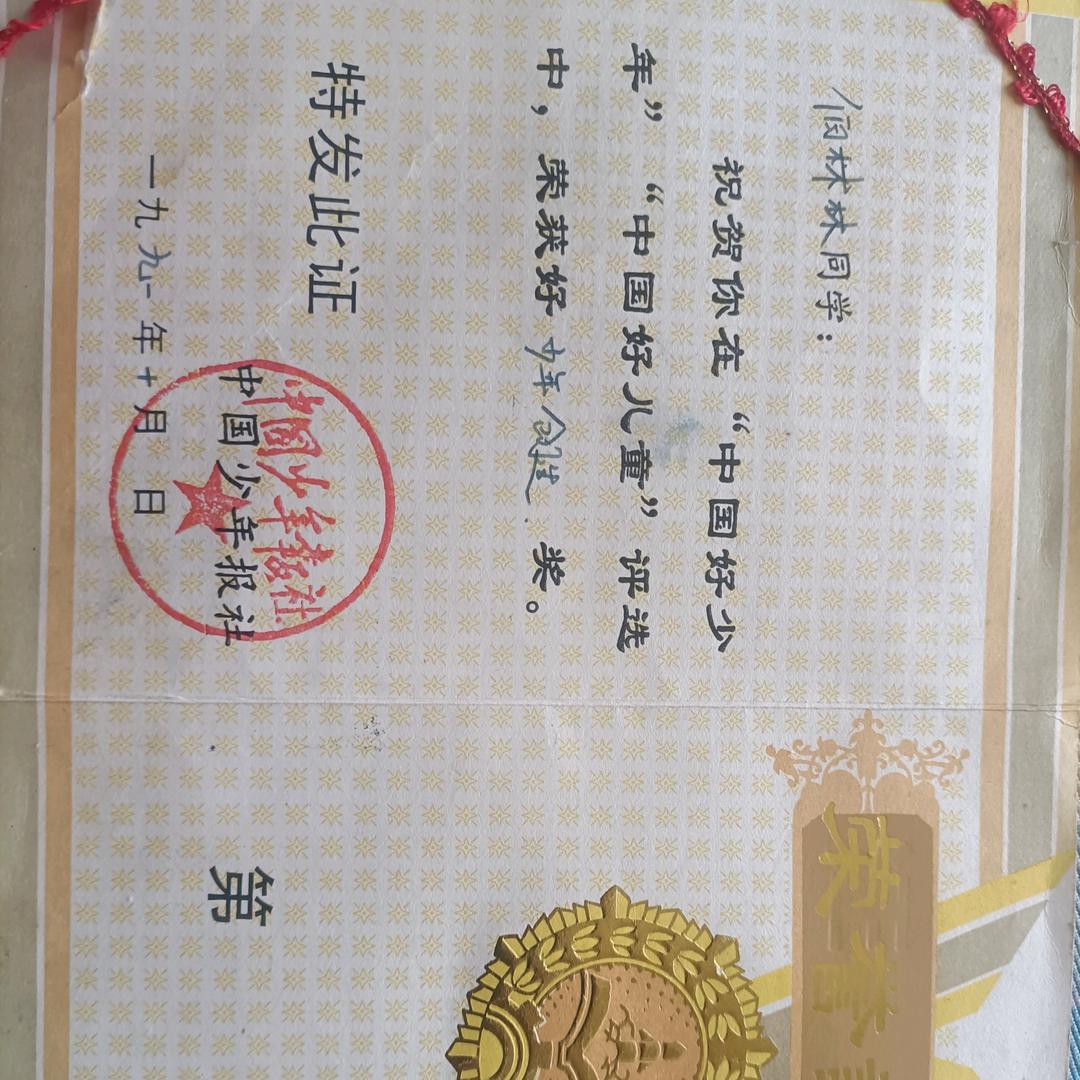 林林同学：
祝贺你在“中国好少
年”“中国好儿童”评选
中，荣获好少年奖。
特发此证
中国少年报社
中國少年報社
一九九一年十月 日
荣誉
第